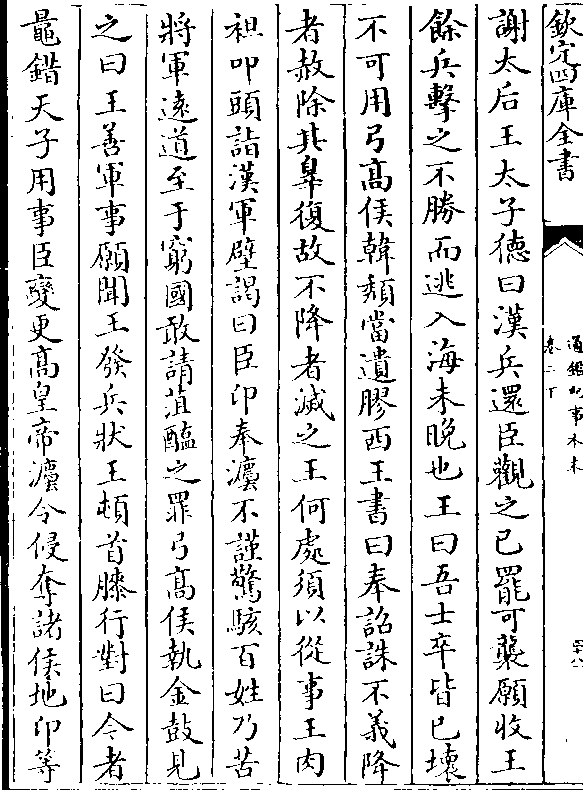 欽定四庫全書
通鑑紀事本末
卷二下
謝太后王太子德曰漢兵還臣觀之已罷可襲願收王
餘兵擊之不勝而逃入海未晚也王曰吾士卒皆已壞
不可用弓髙侯韓頽當遺膠西王書曰奉詔誅不義降
者赦除其辠復故不降者滅之王何處須以從事王肉
袒叩頭詣漢軍壁謁曰臣卬奉灋不謹驚駭百姓乃苦
將軍逺道至于窮國敢請菹醢之罪弓髙侯執金鼓見
之曰王善軍事願聞王發兵狀王頓首膝行對曰今者
鼂錯天子用事臣變更髙皇帝灋令侵奪諸侯地卬等